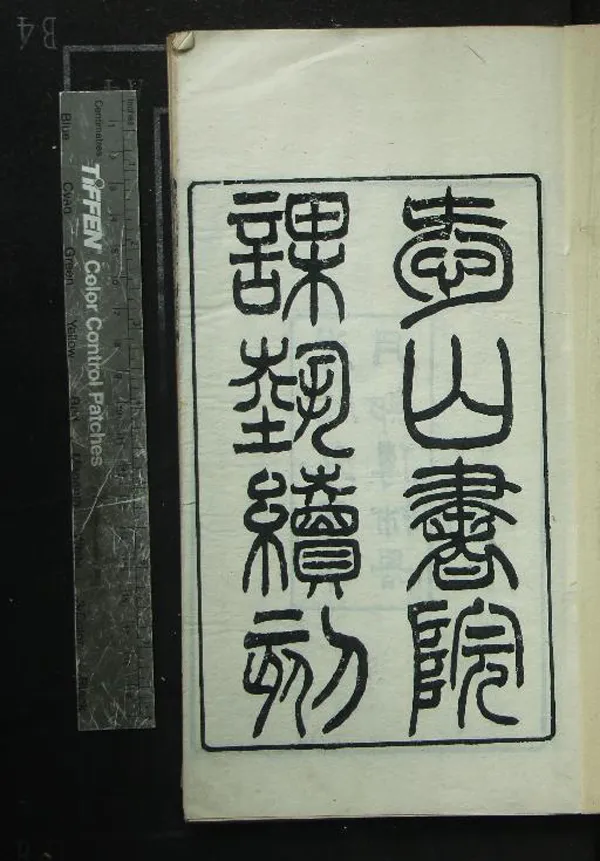 愛山書院
課藝續刻
Inches
Centimetres
TIFFEN Color Control Patches
Blue
Cyan
Green
Yellow
B4